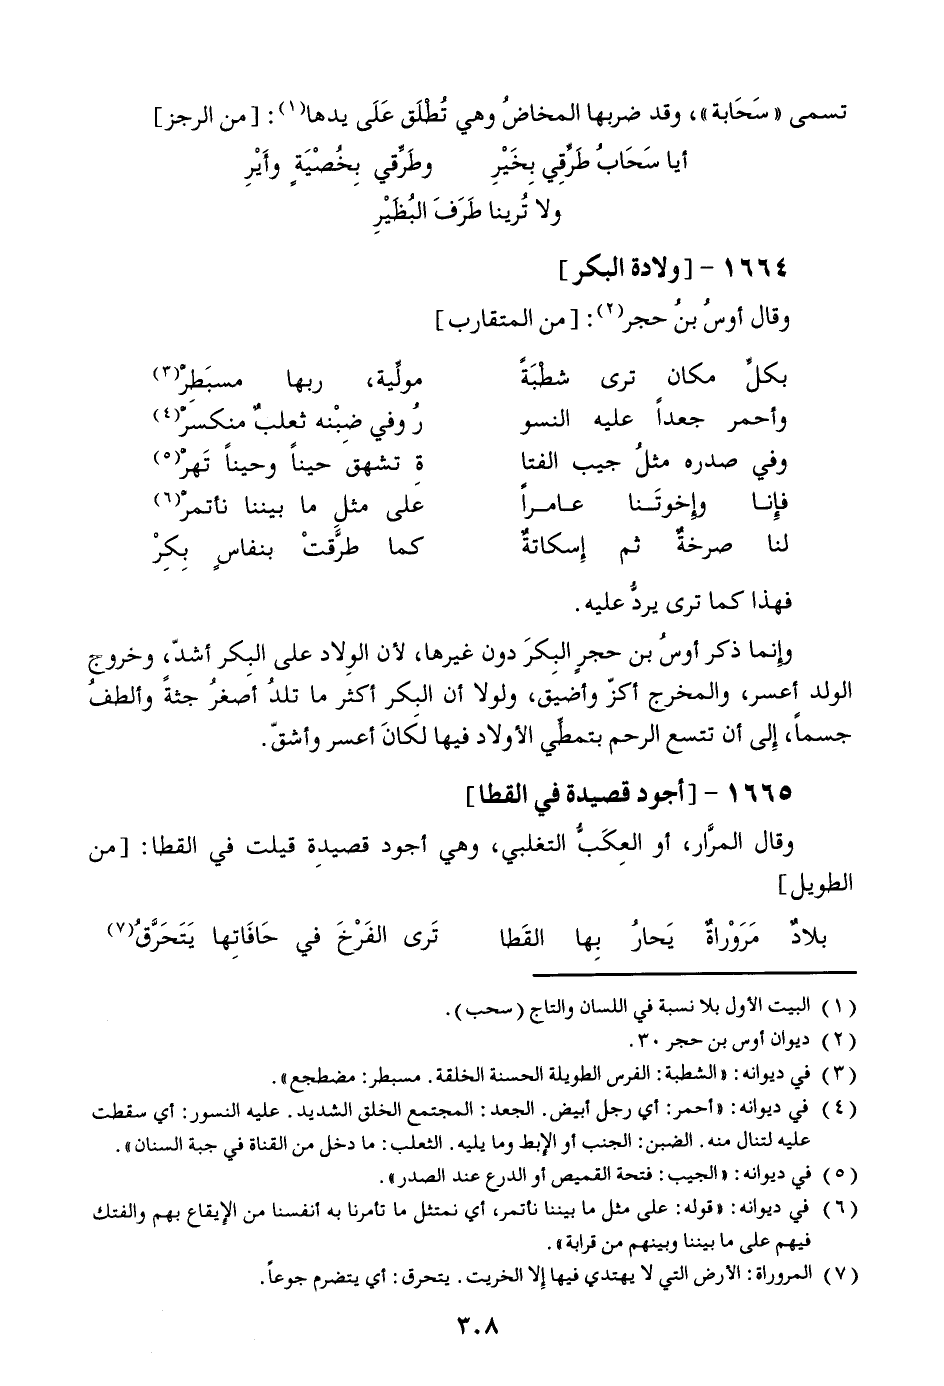 تسمى «سَحَابة»، وقد ضربها المخاضُ وهي تُطْلَق عَلَى يدها(١): [من الرجز]
أيا سَحَابُ طَرِّقِي بِخَيْرِ وطَرِّقي بِخُصْيَةٍ وأَيْرِ
ولا تُرينا طَرَفَ البُظَيْرِ
١٦٦٤ - [ولادة البكر]
وقال أوسُ بنُ حجر(٢): [من المتقارب]
بكلِّ مكان ترى شطْبَةً مولِّية، ربها مسبَطِرْ(٣)
وأحمر جعداً عليه النسو رُ وفي ضِبْنه ثعلبٌ منكسرْ(٤)
وفي صدره مثلُ جيب الفتا ةِ تشهق حيناً وحيناً تَهرْ(٥)
فإنا وإخوتَنا عامراً على مثلِ ما بيننا نأتمرْ(٦)
لنا صرخةٌ ثم إسكاتةٌ كما طرَّقتْ بنفاسٍ بِكِرْ
فهذا كما ترى يردُّ عليه.
وإنما ذكر أوسُ بن حجرٍ البكرَ دون غيرها، لأن الوِلاد على البكر أشدّ، وخروج
الولد أعسر، والمخرج أكزّ وأضيق، ولولا أن البِكر أكثر ما تلدُ أصغرُ جثةً وألطفُ
جسماً، إلى أن تتسع الرحم بتمطِّي الأولاد فيها لكانَ أعسر وأشقّ.
١٦٦٥ - [أجود قصيدة في القطا]
وقال المرَّار، أو العِكَبُّ التغلبي، وهي أجود قصيدة قيلت في القطا: [من
الطويل]
بلادٌ مَرَوْراةٌ يَحارُ بِها القَطا تَرى الفَرْخَ في حَافَاتِها يَتَحَرَّقُ(٧)
(١) البيت الأول بلا نسبة في اللسان والتاج (سحب).
(٢) ديوان أوس بن حجر ٣٠.
(٣) في ديوانه: «الشطبة: الفرس الطويلة الحسنة الخلقة. مسبطر: مضطجع».
(٤) في ديوانه: «أحمر: أي رجل أبيض. الجعد: المجتمع الخلق الشديد. عليه النسور: أي سقطت
عليه لتنال منه. الضبن: الجنب أو الإبط وما يليه. الثعلب: ما دخل من القناة في جبة السنان».
(٥) في ديوانه: «الجيب: فتحة القميص أو الدرع عند الصدر».
(٦) في ديوانه: «قوله: على مثل ما بيننا نأتمر، أي نمتثل ما تأمرنا به أنفسنا من الإيقاع بهم والفتك
فيهم على ما بيننا وبينهم من قرابة».
(٧) المروراة: الأرض التي لا يهتدي فيها إلا الخريت. يتحرق: أي يتضرم جوعاً.
٣٠٨